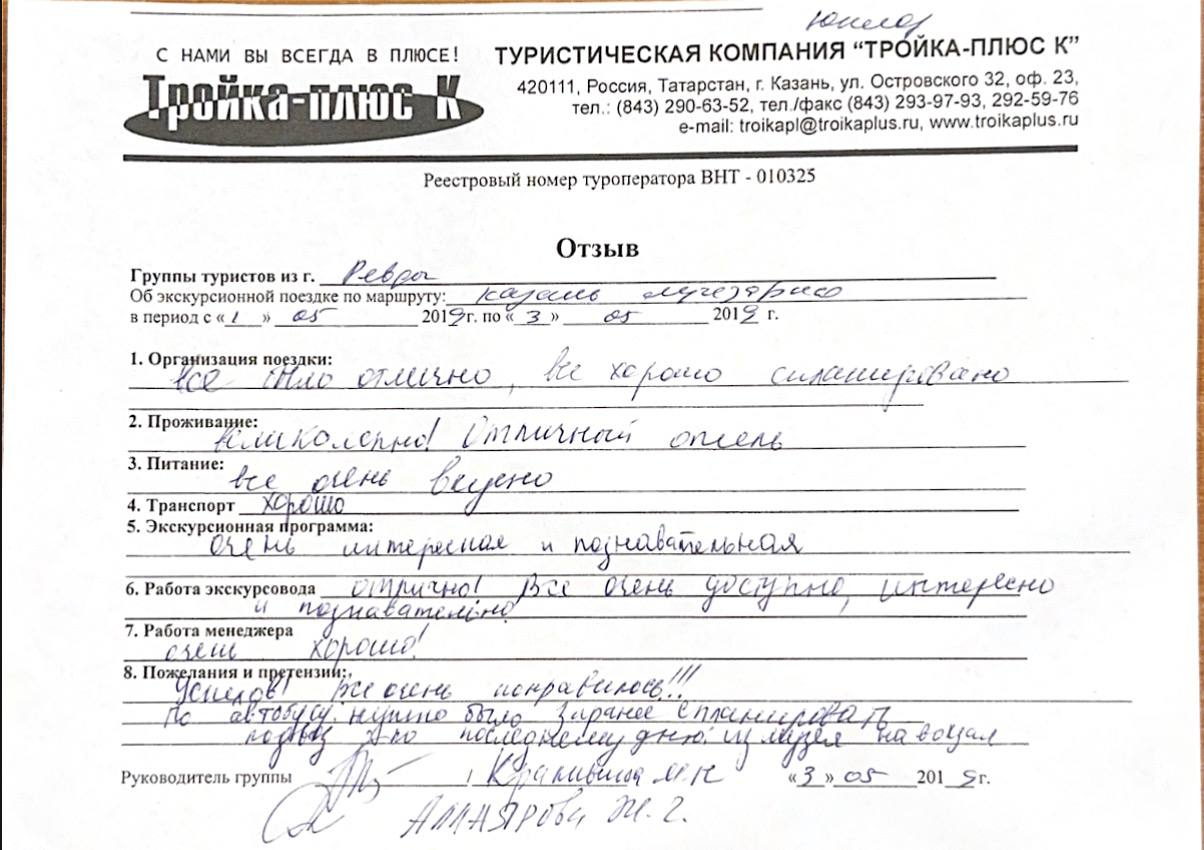 С НАМИ ВЫ ВСЕГДА В ПЛЮСЕ!
Тройка-плюс К
ТУРИСТИЧЕСКАЯ КОМПАНИЯ “ТРОЙКА-ПЛЮС К”
420111, Россия, Татарстан, г. Казань, ул. Островского 32, оф. 23,
тел.: (843) 290-63-52, тел./факс (843) 293-97-93, 292-59-76
e-mail: troikapl@troikaplus.ru, www.troikaplus.ru
Реестровый номер туроператора ВНТ - 010325
Отзыв
Группы туристов из г. Ревды
Об экскурсионной поездке по маршруту: Казань
в период с «1» 05 2019г. по «3» 05 2019 г.
1. Организация поездки:
все было отлично, все хорошо спланировано
2. Проживание:
великолепно! Отличный отель
3. Питание:
все очень вкусно
4. Транспорт хорошо
5. Экскурсионная программа:
очень интересная и познавательная
6. Работа экскурсовода отлично! Все очень доступно, интересно
и познавательно
7. Работа менеджера
очень хорошо!
8. Пожелания и претензии:
Успехов! Все очень понравилось!!!
По автобусу. нужно было заранее спланировать
по последнему дню: из музея на вокзал
Руководитель группы / «3» 05 2019г.